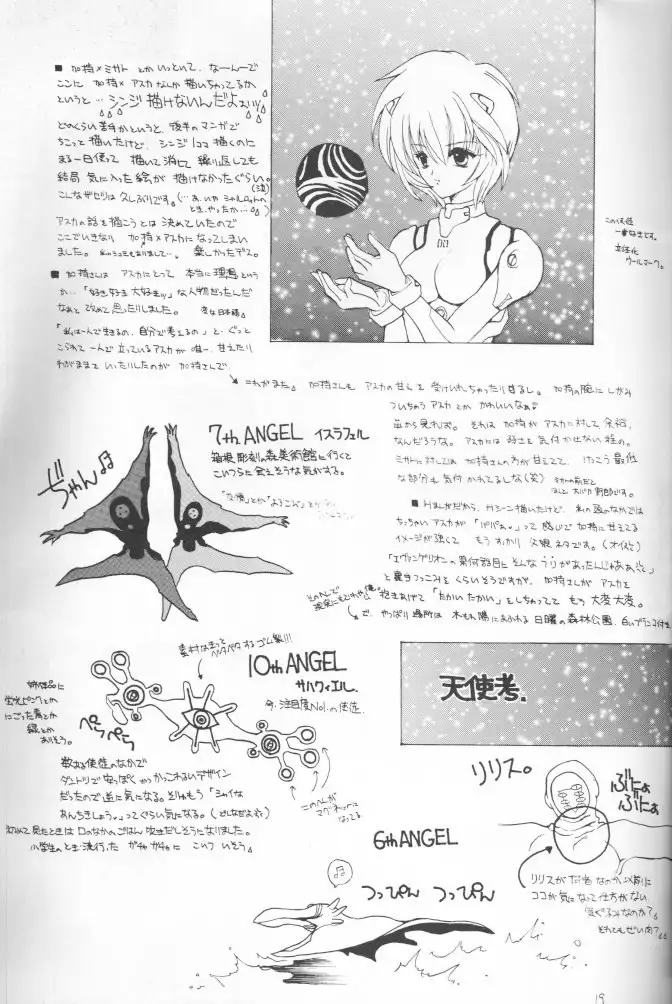 ■ 加持×ミサト とかいっといて、なーんーで
ここに 加持×アスカなんか描いちゃってるか
というと… シンジ描けないんだよぉぃッ
どのくらい苦手かというと、後半のマンガで
ちこっと描いたけど、シンジ1コマ描くのに
まる一日使って 描いて消して繰り返しても
結局 気に入った絵が 描けなかったぐらい。(泣)
こんなザセツは久しぶりです。
アスカの話を描こうとは 決めていたので
ここでいきなり 加持×アスカになってしまい
ました。 楽しかったデス。
■ 加持さんは アスカにとって 本当に理想という
か…「好き好き大好きッ」な人物だったんだ
なぁと 改めて思ったりしました。 変な日本語
「私は一人で生きるの、自分で考えるの」と、ぐっと
こらえて一人で立っているアスカが 唯一 甘えたり
わがままをいったりしたのが 加持さんで、
この天使
一番好きです。
女性化
ウールマーク。
これがまた。 加持さんも アスカの甘えを 受けいれちゃったりするし。 加持の腕に しがみ
ついちゃうアスカとか かわいいなぁ
それは 加持が アスカに対して 余裕
なんだろうな。 アスカには 気付かせない 程の。
ミサトに対しては 加持さんの方が甘えてて、けっこう最低
な部分も 気付かれてるしな(笑)
■ Hほんだから、Hシーン描いたけど、私の頭のなかでは
ちっちゃいアスカが 「パパぁ」って感じで 加持に甘えてる
イメージが強くて もうすっかり 父娘ネタです。(オイ)
「エヴァンゲリオンの第何話目に そんなうりがあったんじゃぁぁ」
と 裏手つっこみをくらいそうですが、加持さんがアスカを
抱きあげて「たかいたかい」をしちゃってて もう 大変大変。
で、やっぱり場所は 木もれ陽にあふれる 日曜の森林公園、白いブランコ付き
7th ANGEL イスラフェル
箱根彫刻の森美術館に行くと
こいつらに会えそうな気がする。
じゃん♫
10th ANGEL
サハクィエル。
今、注目度No.1の使徒。
素材はきっと
ベタベタするゴム製!!!
ぺらぺら
数ある使徒のなかで
ダントツで安っぽくかつかっこわるいデザイン
だったので 逆に気になる。
あんちきしょう。」ってぐらい気になる。
初めて見たときは 口のなかのごはん吹きだしそうになりました。
小学生のとき流行った ガチャガチャに こいつ いそう
このへんが
マグネットに
なってる
天使考.
リリス。
ぶにょ
ぶにょ
リリスが何者なのか以前に
ココが気になって仕方がない
きぐるみなのか?
それともぜい肉?
6th ANGEL
つっぴん つっぴん
19